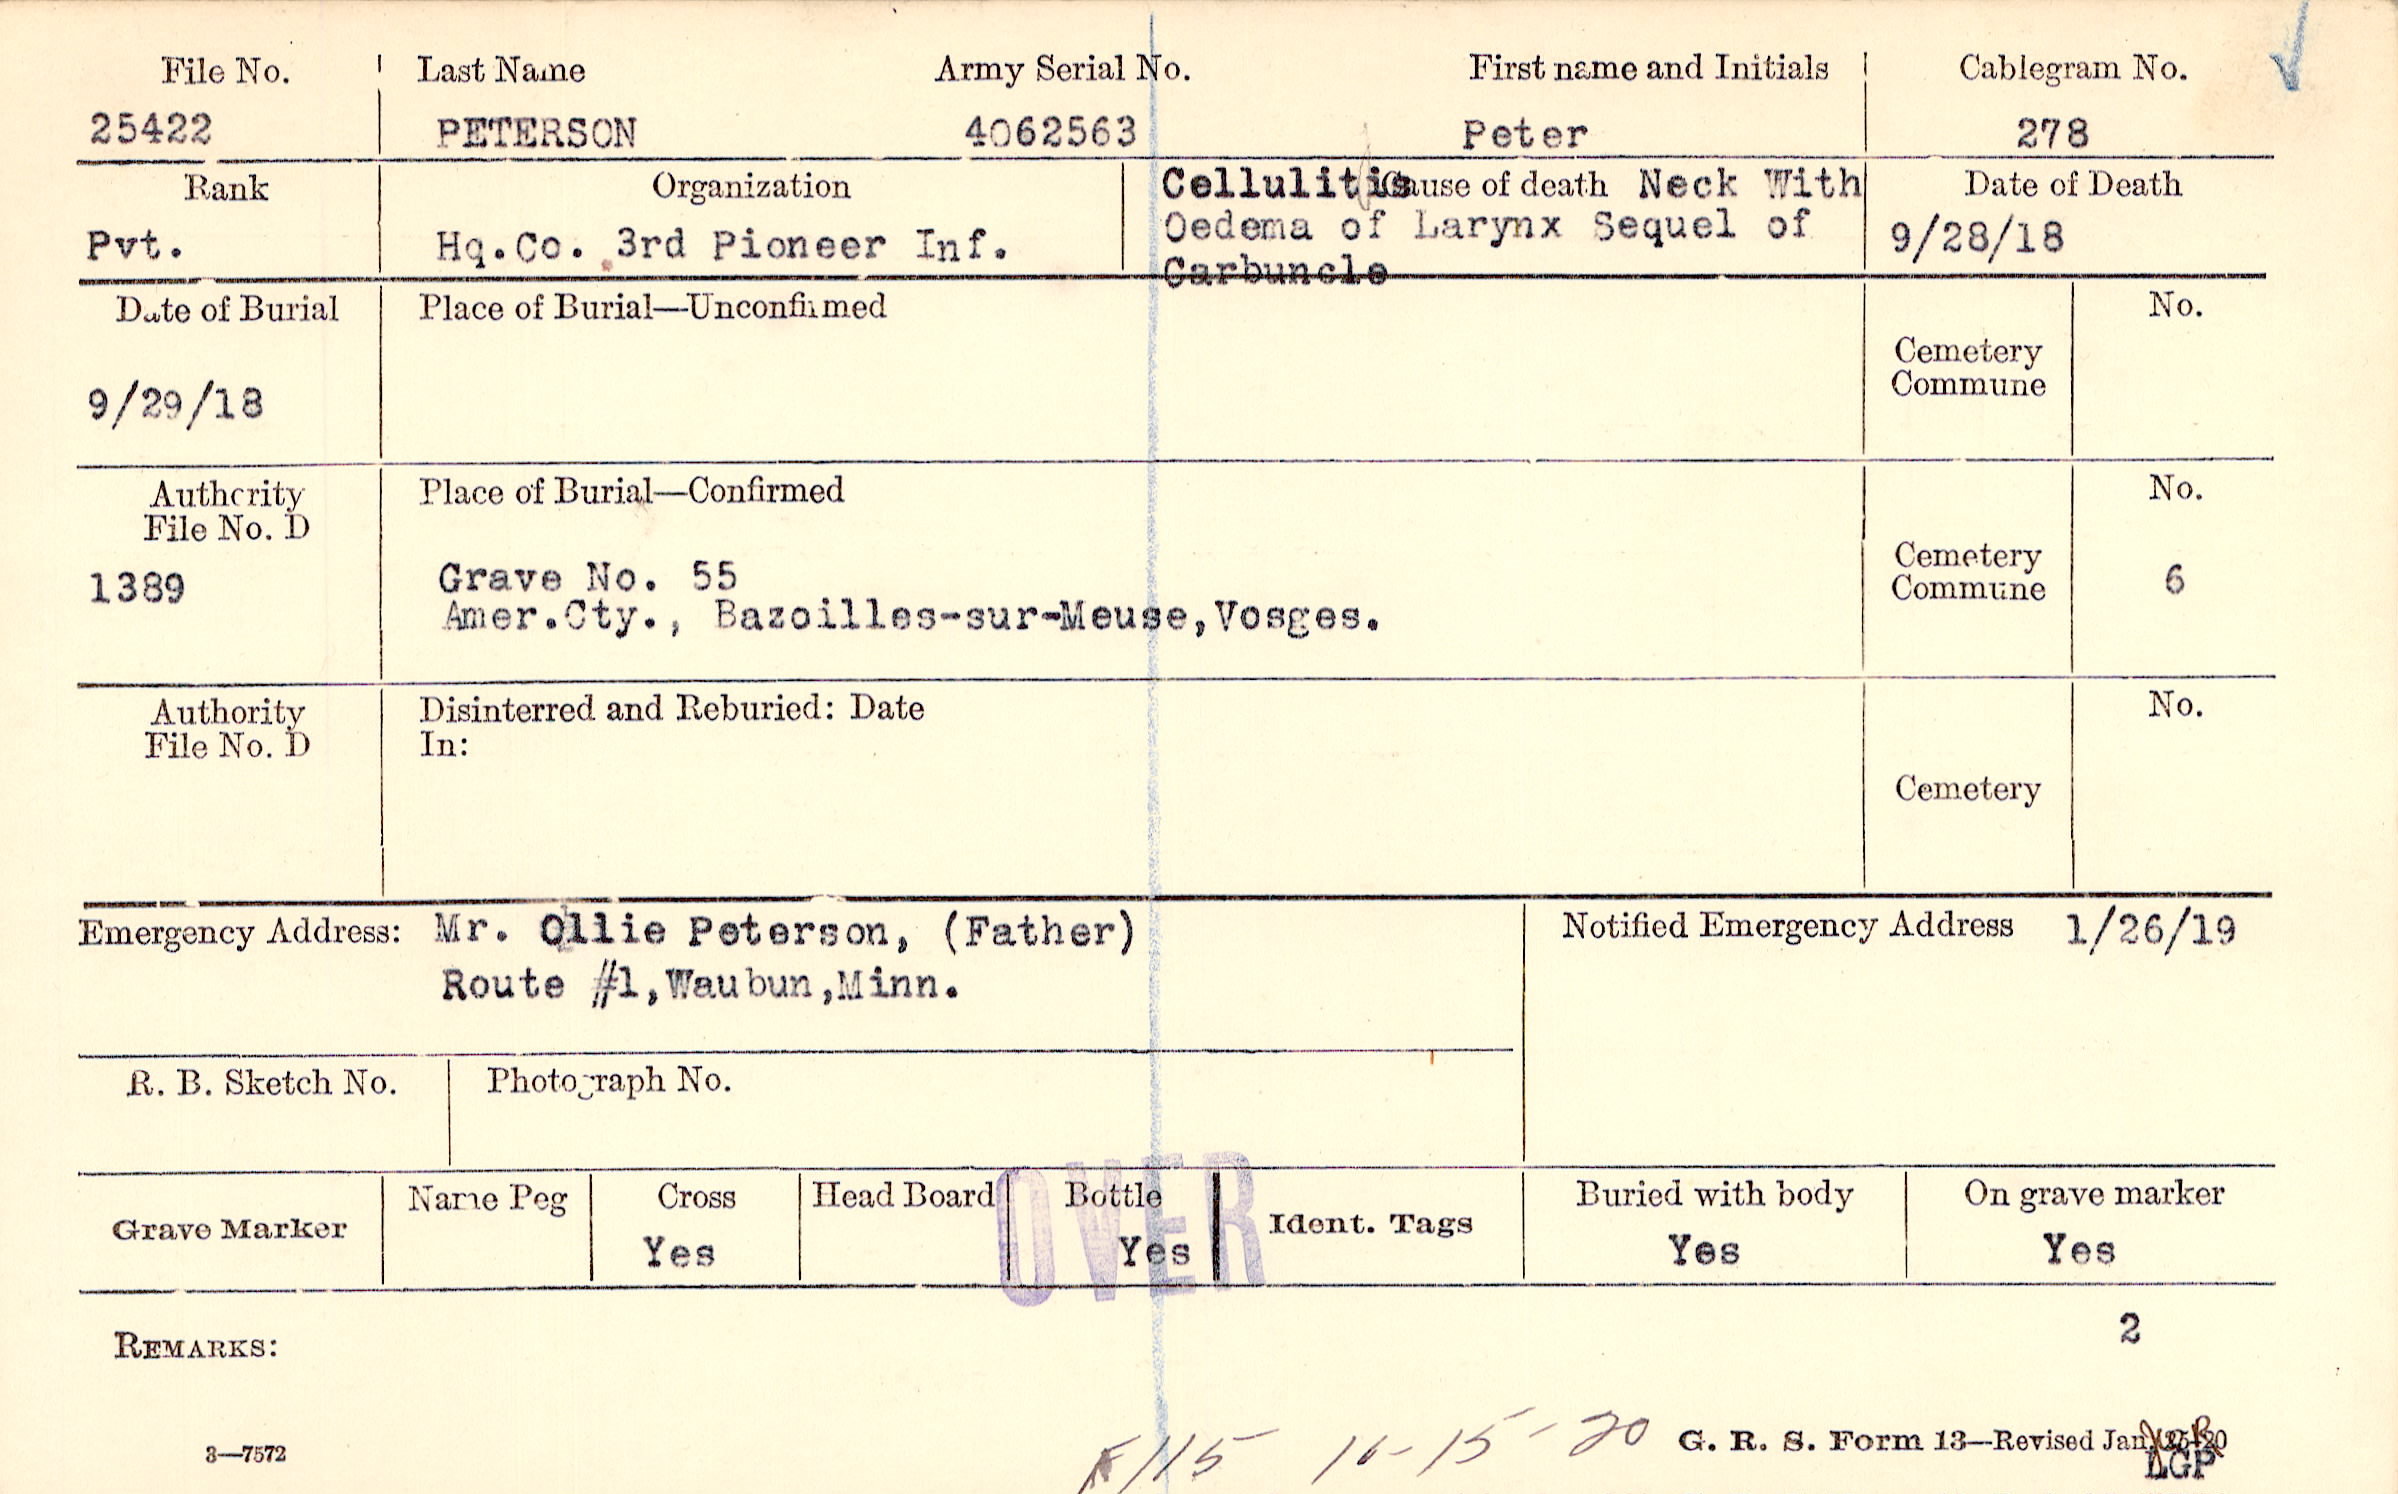 File No. Last Name Army Serial No. First name and Initials Cablegram No.
25422 PETERSON 4062563 Peter 278
Rank Organization Cause of death Date of Death
Cellulitis Neck With
Oedema of Larynx Sequel of
Carbuncle
Pvt. Hq.Co. 3rd Pioneer Inf. 9/28/18
Date of Burial Place of Burial—Unconfirmed No.
Cemetery
Commune
9/29/18
Authority Place of Burial—Confirmed No.
File No. D
1389 Grave No. 55 Cemetery
Commune 6
Amer.Cty., Bazoilles-sur-Meuse,Vosges.
Authority Disinterred and Reburied: Date No.
File No. D In:
Cemetery
Emergency Address: Mr. Ollie Peterson, (Father) Notified Emergency Address 1/26/19
Route #1,Waubun,Minn.
R. B. Sketch No. Photograph No.
Grave Marker Name Peg Cross Head Board Bottle Ident. Tags Buried with body On grave marker
Yes Yes Yes Yes
OVER
2
REMARKS:
3—7572 G. R. S. Form 13—Revised Jan.
LGP